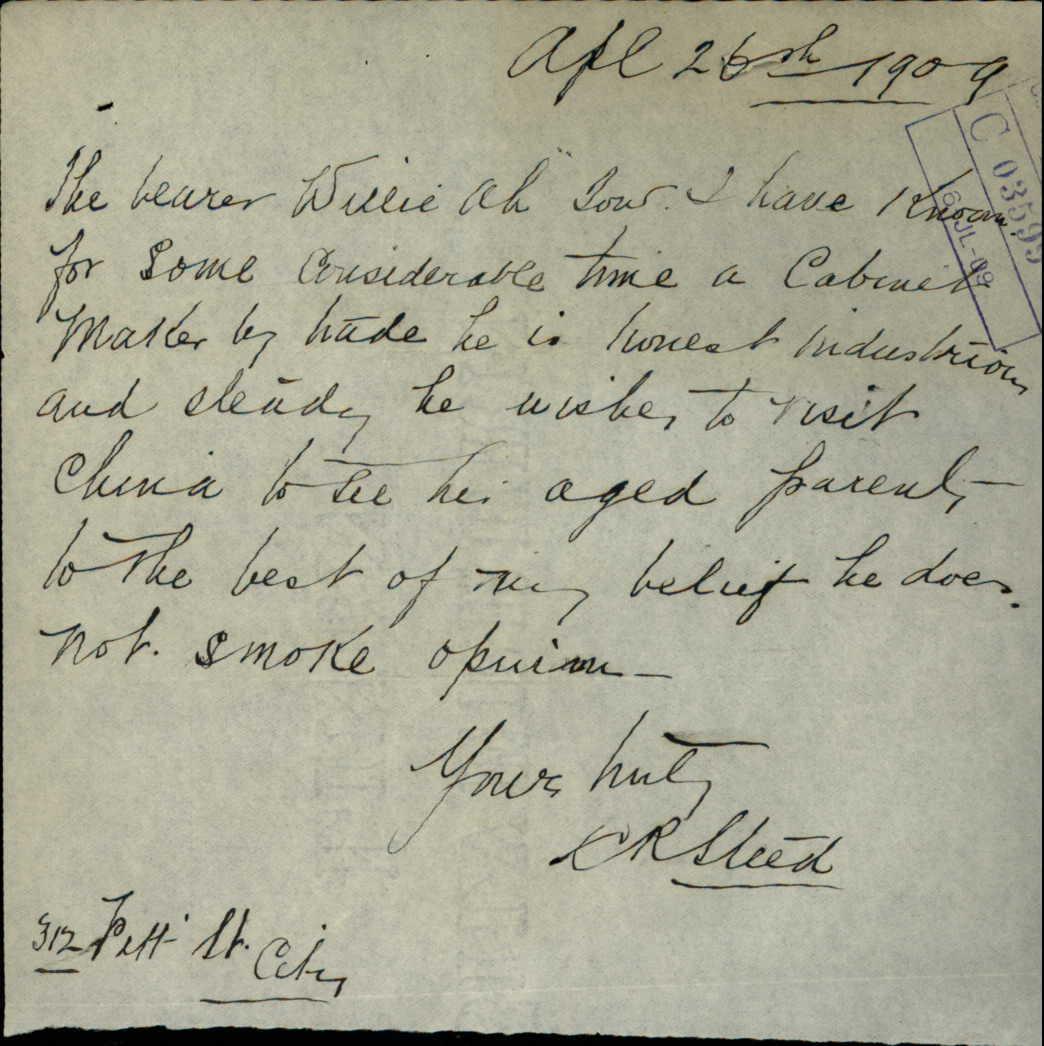 Apl 26th 1909
C 03595
6 JL-09
The bearer Willie Ah Sow. I have Known
for some Considerable time a Cabinet
Maker by trade he is honest industrious
and steady he wishes to visit
China to see his aged parents —
to the best of my belief he does.
not. smoke opuim —
Yours truly
C R Steed
312 Pitt St. City